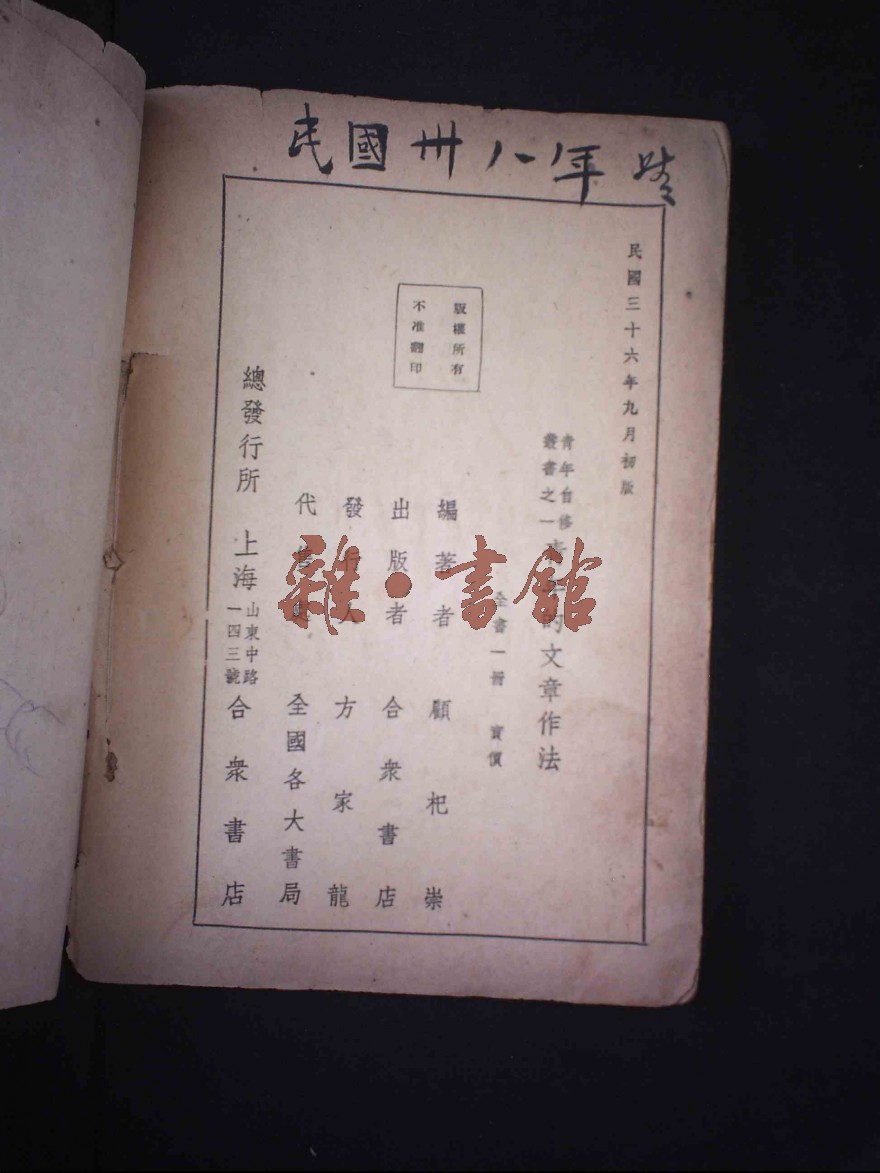 民國卅八年
民國三十六年九月初版
青年自修
叢書之一
的文章作法
全書一冊 實價
版權所有
不准翻印
編著者 顧杞崇
出版者 合衆書店
發行人 方家龍
代售處 全國各大書局
總發行所 上海 山東中路
一四三號 合衆書店
雜·書館